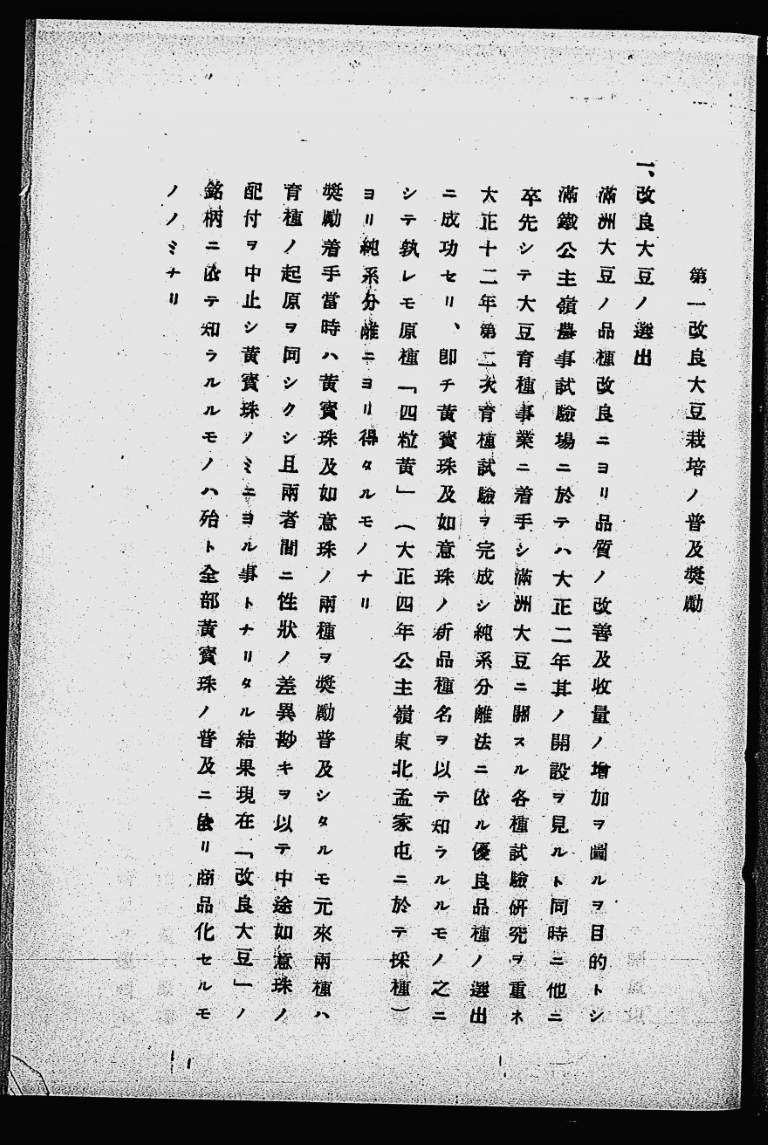 第一改良大豆栽培ノ普及奬勵
一、改良大豆ノ選出
滿洲大豆ノ品種改良ニヨリ品質ノ改善及收量ノ增加ヲ圖ルヲ目的トシ
滿鐵公主嶺農事試驗場ニ於テハ大正二年其ノ開設ヲ見ルト同時ニ他ニ
卒先シテ大豆育種事業ニ着手シ滿洲大豆ニ關スル各種試驗硏究ヲ重ネ
大正十二年第二次育種試驗ヲ完成シ純系分離法ニ依ル優良品種ノ選出
ニ成功セリ、卽チ黃寶珠及如意珠ノ新品種名ヲ以テ知ラルルモノ之ニ
シテ孰レモ原種「四粒黃」（大正四年公主嶺東北孟家屯ニ於テ採種）
ヨリ純系分離ニヨリ得タルモノナリ
奬勵着手當時ハ黃寶珠及如意珠ノ兩種ヲ奬勵普及シタルモ元來兩種ハ
育種ノ起原ヲ同シクシ且兩者間ニ性狀ノ差異尠キヲ以テ中途如意珠ノ
配付ヲ中止シ黃寶珠ノミニヨル事トナリタル結果現在「改良大豆」ノ
銘柄ニ依テ知ラルルモノハ殆ト全部黃寶珠ノ普及ニ依リ商品化セルモ
ノノミナリ